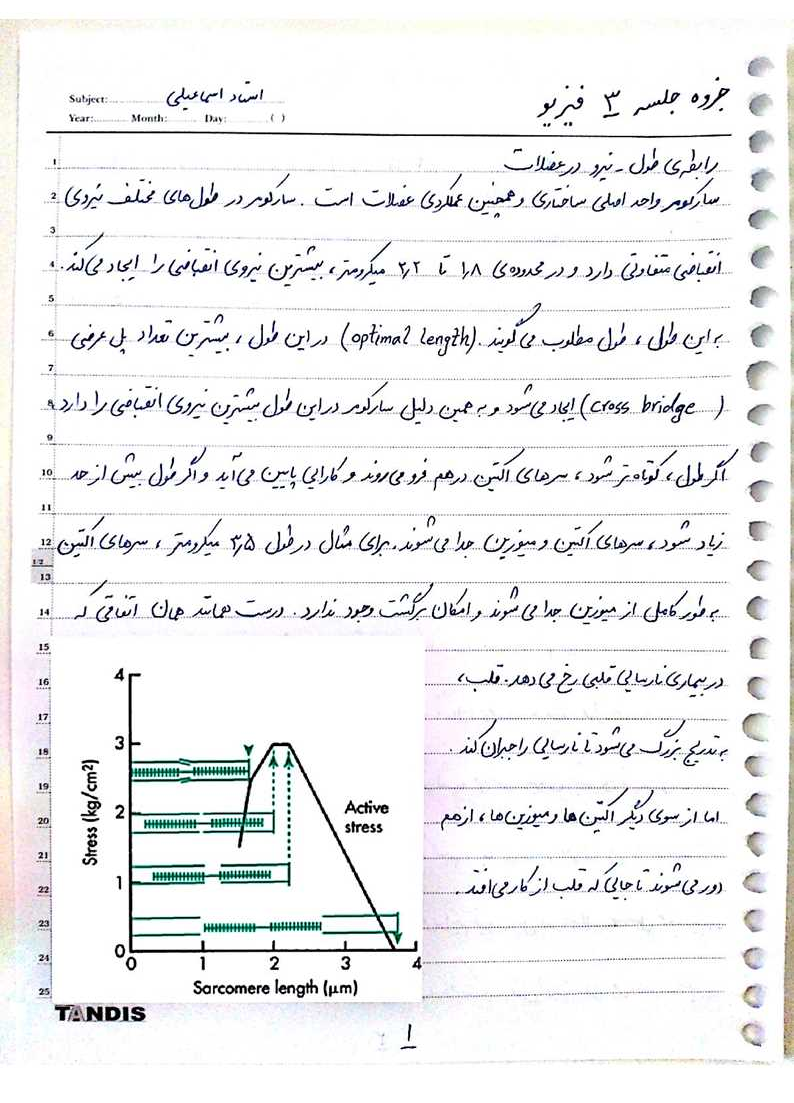 جزوه جلسه ۳ فیزیو
Subject: استاد اسماعیلی
Year: Month: Day: ( )
رابطه‌ی طول - نیرو در عضلات
سارکومر واحد اصلی ساختاری و همچنین عملکردی عضلات است . سارکومر در طول‌های مختلف نیروی
انقباضی متفاوتی دارد و در محدوده‌ی ۱٫۸ تا ۲٫۲ میکرومتر ، بیشترین نیروی انقباضی را ایجاد می‌کند .
به این طول ، طول مطلوب می‌گویند . (optimal length) در این طول ، بیشترین تعداد پل عرضی
(cross bridge) ایجاد می‌شود و به همین دلیل سارکومر در این طول بیشترین نیروی انقباضی را دارد .
اگر طول ، کوتاه‌تر شود ، سرهای اکتین در هم فرو می‌روند و کارایی پایین می‌آید و اگر طول بیش از حد
زیاد شود ، سرهای اکتین و میوزین جدا می‌شوند . برای مثال در طول ۳٫۵ میکرومتر ، سرهای اکتین
به طور کامل از میوزین جدا می‌شوند و امکان برگشت وجود ندارد . درست همانند همان اتفاقی که
در بیماری نارسایی قلبی رخ می‌دهد . قلب ،
به تدریج بزرگ می‌شود تا نارسایی را جبران کند .
اما از سوی دیگر اکتین ها و میوزین ها ، از هم
دور می‌شوند تا جایی که قلب از کار می‌افتد .
1
2
3
4
5
6
7
8
9
10
11
12
1/2
13
14
15
16
17
18
19
20
21
22
23
24
25
Stress (kg/cm²)
4
3
2
1
0
Active
stress
0 1 2 3 4
Sarcomere length (μm)
TANDIS
۱